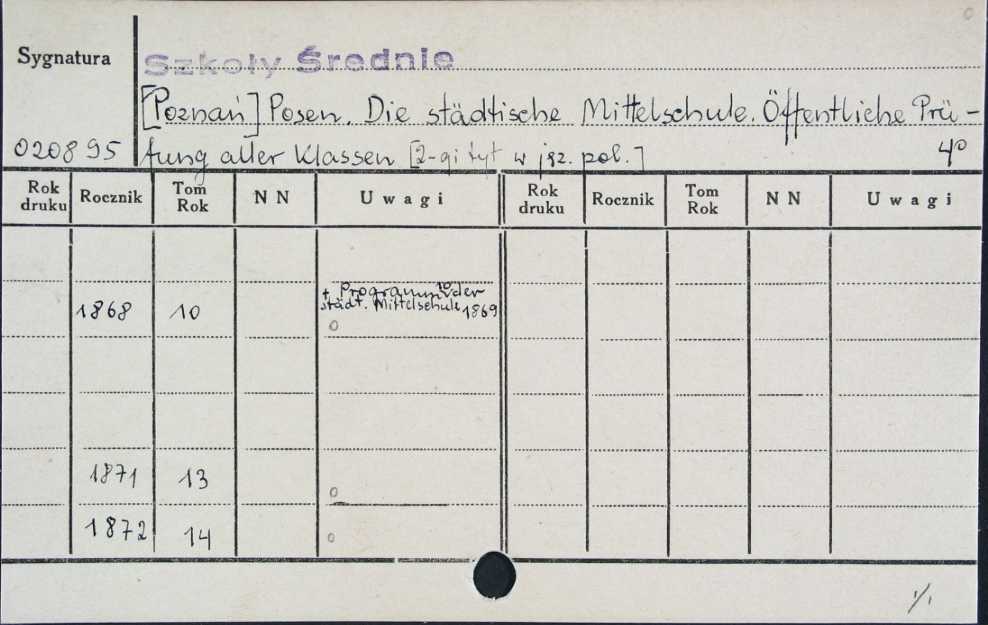 0
Sygnatura
Szkoły Średnie
[Poznań] Posen. Die städtische Mittelschule. Öffentliche Prü-
020895 fung aller Klassen [2-gi tyt w jęz. pol.] 4°
Rok druku Rocznik Tom Rok NN Uwagi Rok druku Rocznik Tom Rok NN Uwagi
+ Programm 10 der
städt. Mittelschule 1869
1868 10
0
1871 13
0
1872 14 0
1/1